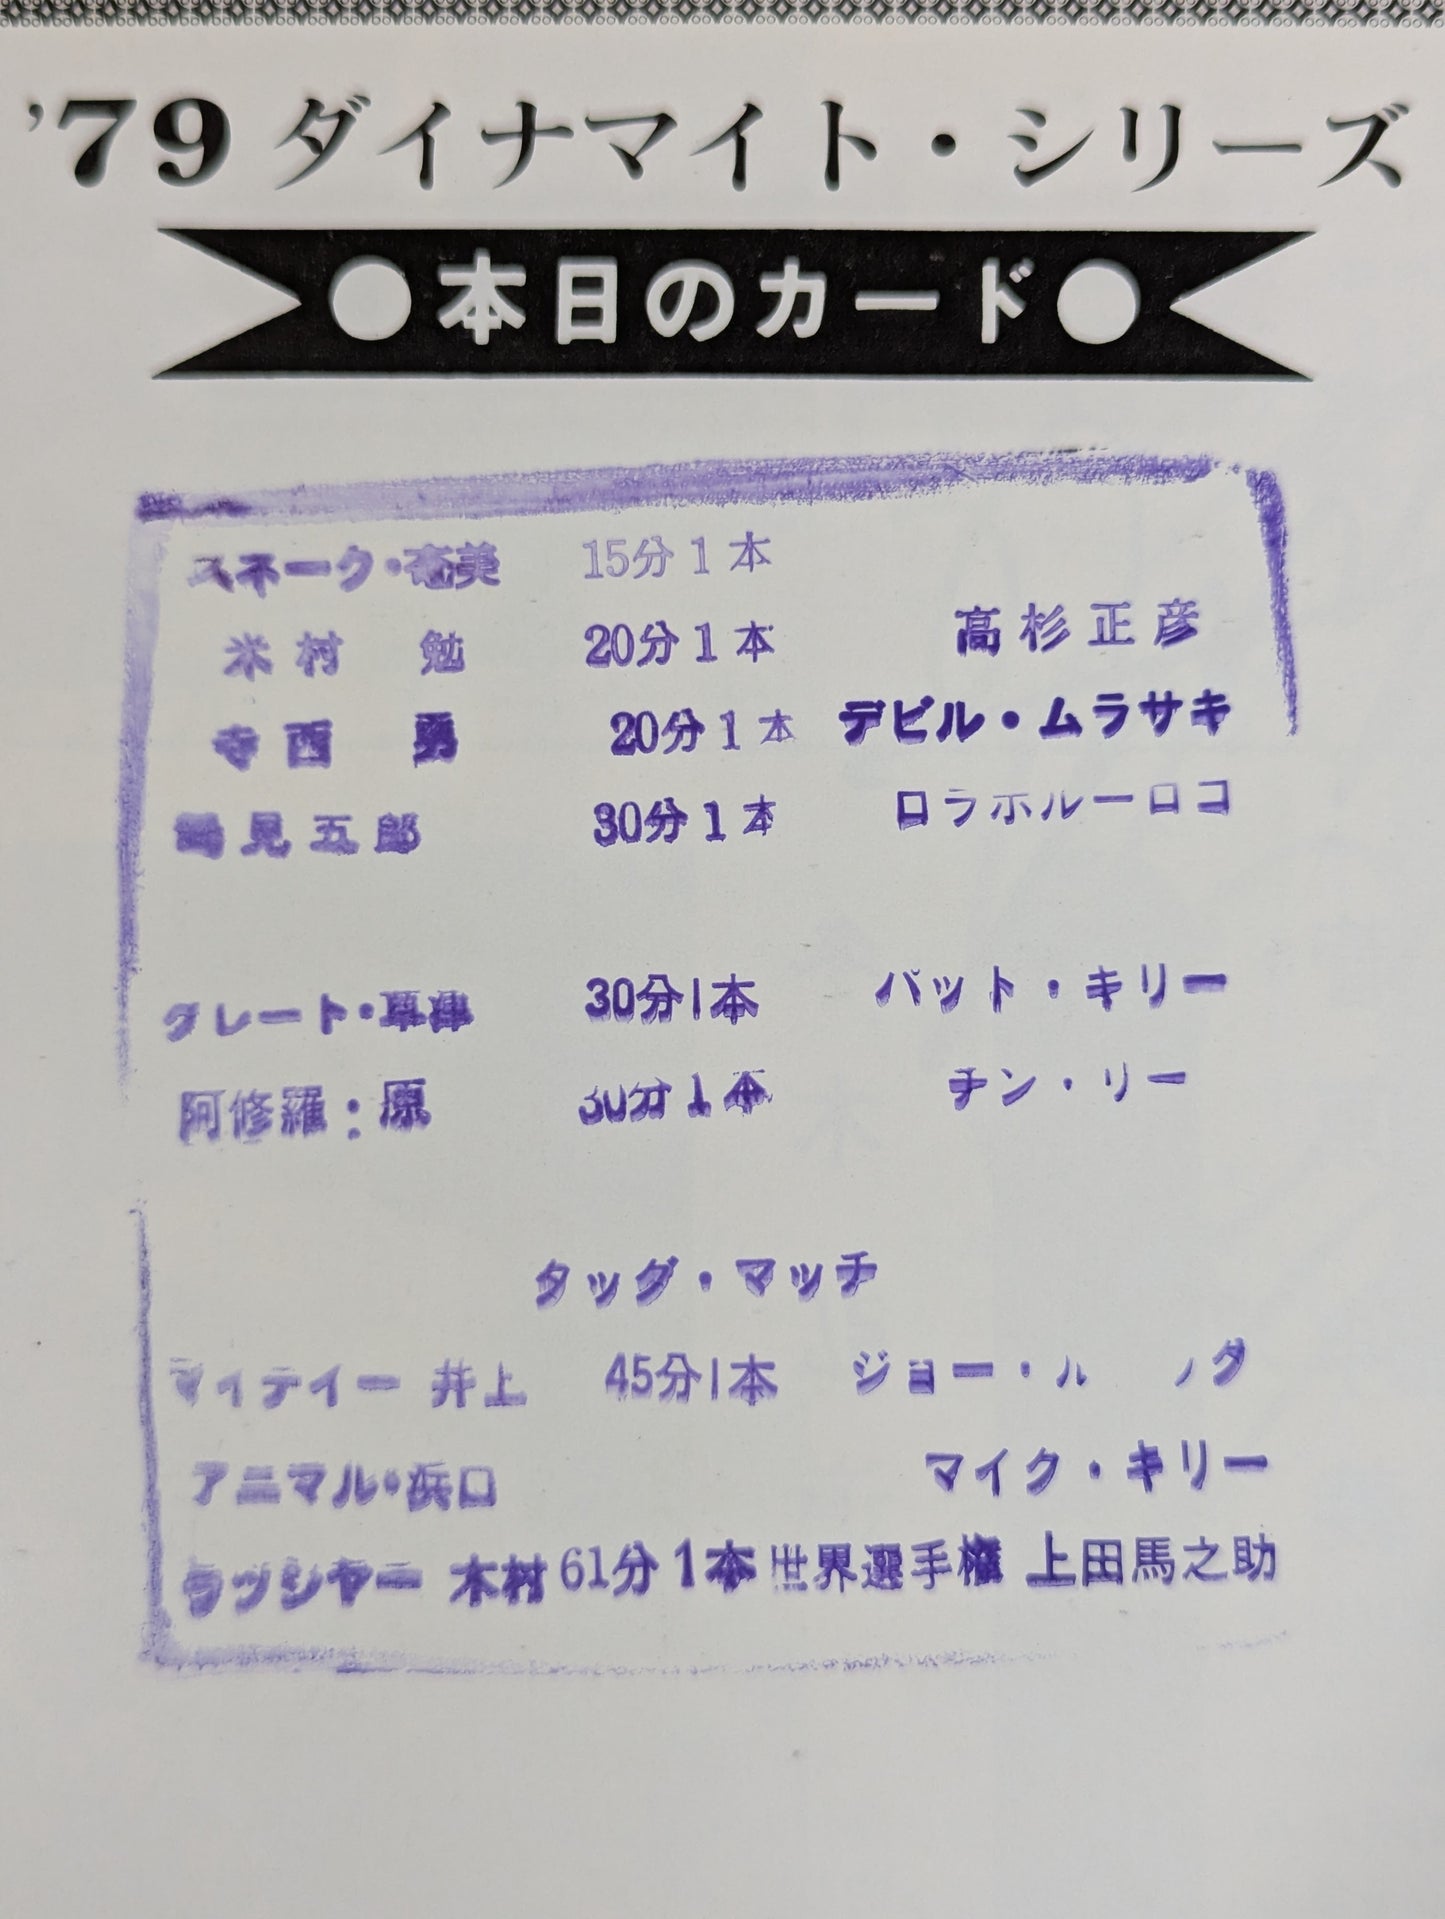 ’79 ダイナマイト・シリーズ
●本日のカード●
スネーク・奄美 15分1本
米村 勉 20分1本 高杉正彦
寺西 勇 20分1本 デビル・ムラサキ
鶴見五郎 30分1本 ロラホルーロコ
グレート・草津 30分1本 バット・キリー
阿修羅：原 30分1本 チン・リー
タッグ・マッチ
マイティー 井上 45分1本 ジョー・ル
アニマル・浜口 マイク・キリー
ラッシャー 木村 61分1本 世界選手権 上田馬之助